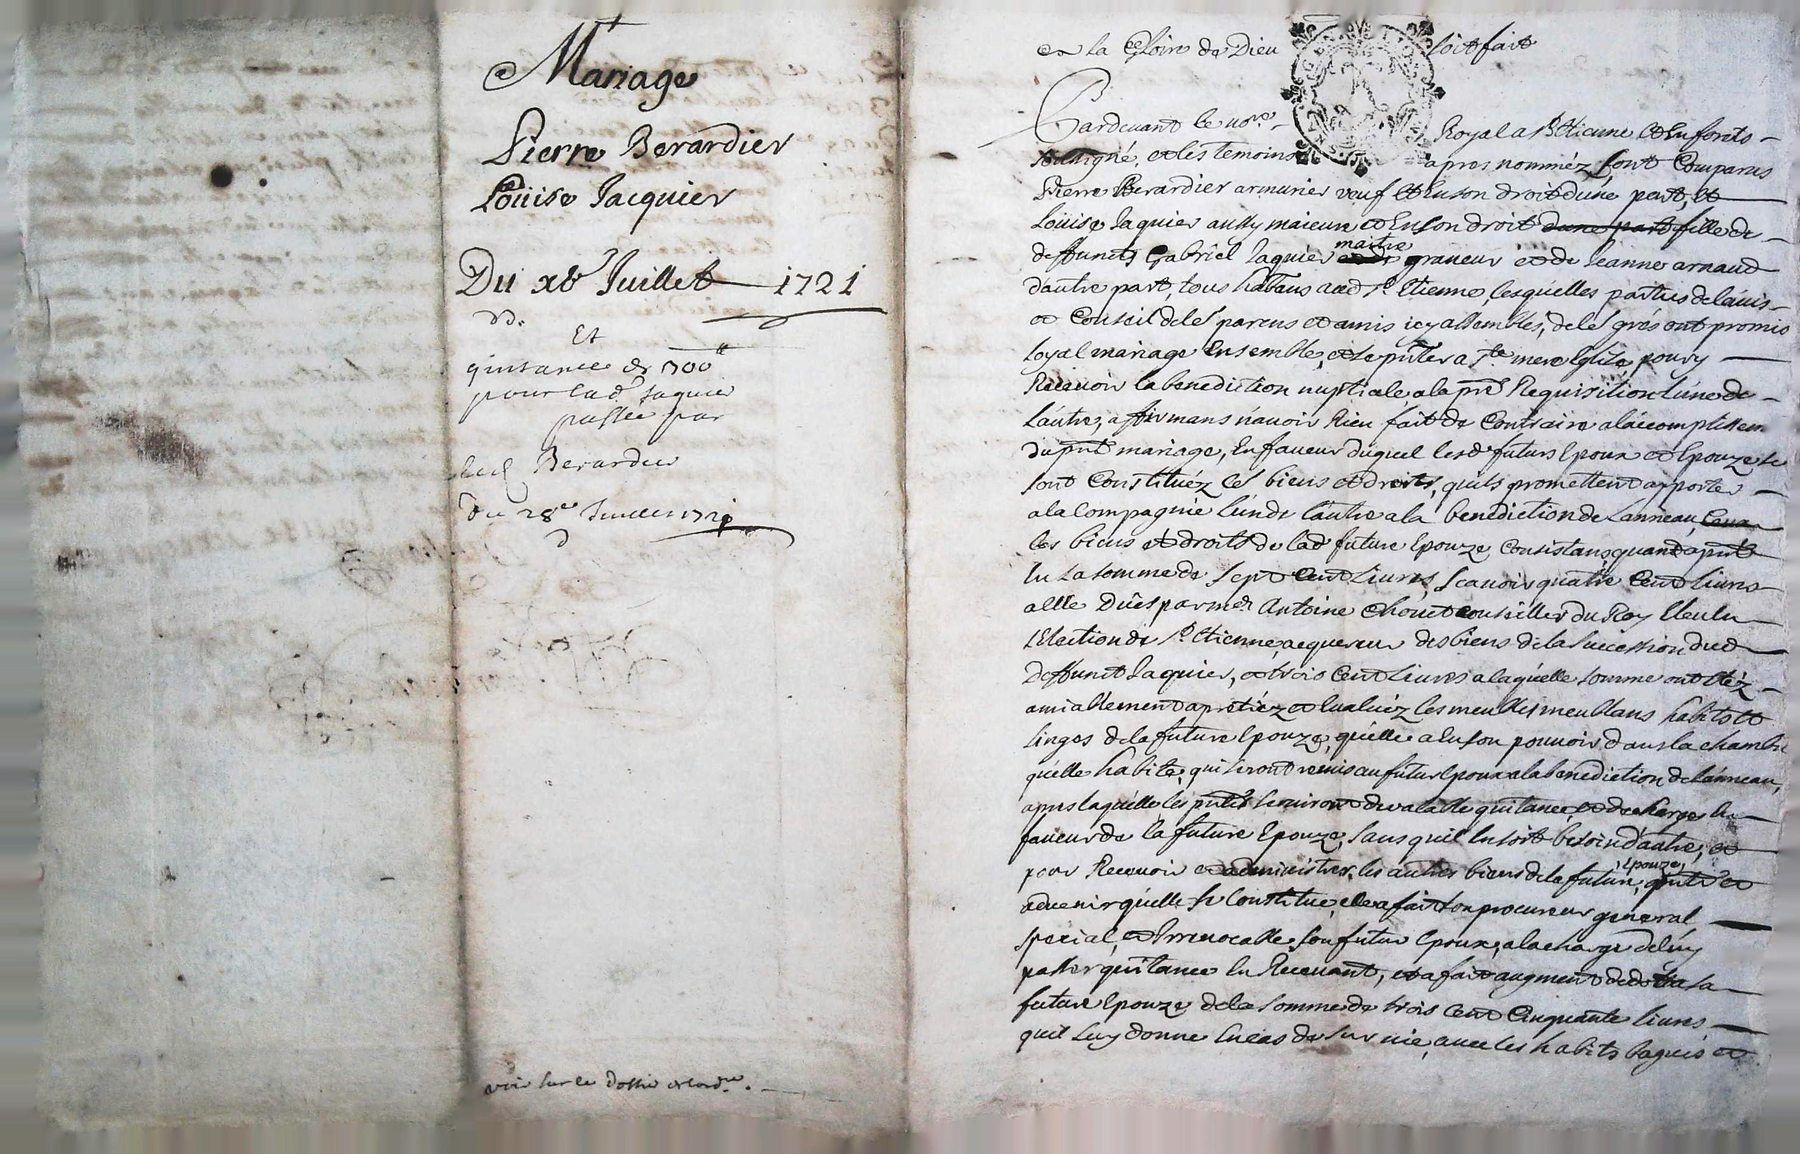 Mariage
Pierre Berardier
Loüise Jacquier
Du xbe Juillet 1721
Et
quittance de 700 ll
pour lad. Jaquier
passée par
led Berardier
du 28e Juillet 1721
voir sur le dossier
a La Gloire de Dieu soit fait
Pardevant le nore Royal a St Etienne et En forests
soussigné, et les temoins apres nomméz sont Comparus
Pierre Berardier armurier veuf et En son droit d'une part, et
Loüise Jaquier aussy majeure et En son droit dune part fille de
deffunts Gabriel Jaquier maitre graveur et de Jeanne arnaud
d'autre part, tous habitans aud St Etienne, lesquelles parties de lavis
et Conseil de les parens et amis icy assembles, de les grés ont promis
loyal mariage Ensemble, et se pnter a ste mere Eglise pour y
Recevoir la benediction nuptiale a la pre Requisition Lune de
Lautre, affirmans n'avoir Rien fait de Contraire a l'accomplissem
du pnt mariage, En faveur duquel lesd futurs Epoux et Epouze se
sont Constituéz les biens et droits, quils promettent apporter
a la Compagnie l'un de l'autre a la benediction de Lanneau,
les biens et droits de lad future Epouze, Consistans quant a pnt
En La somme de Sept Cent Livres, Scavoir quatre Cent Livres
a Elle Dûes par mr Antoine Chovet Conseiller du Roy Eleu En
LElection de St Etienne acquereur des biens de la Succession dud
deffunt Jaquier, et trois Cent Livres a laquelle somme ont Etéz
amiablement apretiéz et Evaluéz les meubles meublans habits et
Linges de la future Epouze, quelle a En son pouvoir dans la chambre
quelle habite, qui seront remis au futur Epoux a la benediction de Lanneau,
apres laquelle les pntes serviront de valable quittance, et decharge En
faveur de la future Epouze, Sans quil En soit besoin d'autre, et
pour Recevoir et administrer les autres biens de la future Epouze, pnts et
advenir quelle se Constitue, elle a fait son procureur general
special, et Irrevocable, son futur Epoux, a la charge de luy
passer quittance En Recevant, et a fait augment de dot a sa
future Epouze de la Somme de trois Cent Cinquante Livres
quil Luy donne En cas de survie, avec les habits bagues et